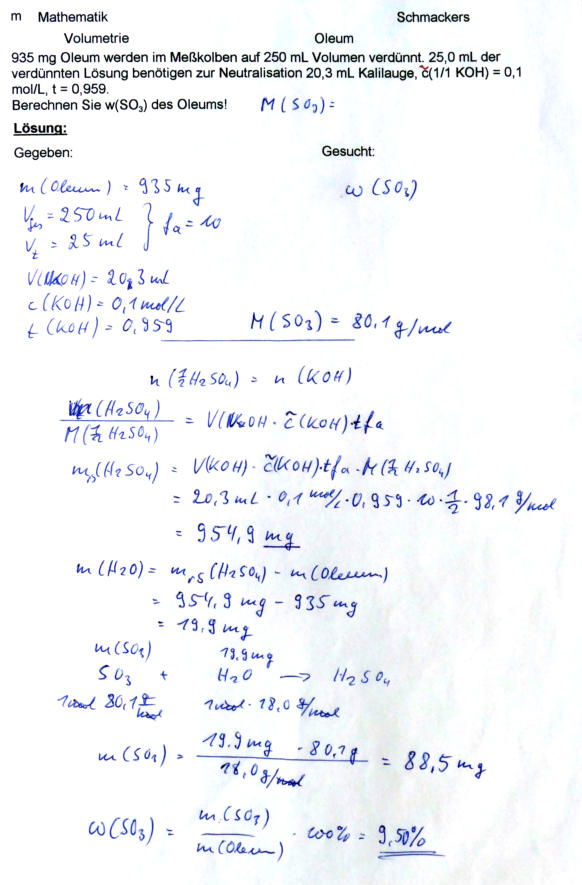 m Mathematik Schmackers
Volumetrie Oleum
935 mg Oleum werden im Meßkolben auf 250 mL Volumen verdünnt. 25,0 mL der
verdünnten Lösung benötigen zur Neutralisation 20,3 mL Kalilauge, c̃(1/1 KOH) = 0,1
mol/L, t = 0,959.
Berechnen Sie w(SO₃) des Oleums! M(SO₃) =
Lösung:
Gegeben: Gesucht:
m(Oleum) = 935 mg ω(SO₃)
Vges = 250 mL } fa = 10
Vt = 25 mL
V(KOH) = 20,3 mL
c(KOH) = 0,1 mol/L
t(KOH) = 0,959 M(SO₃) = 80,1 g/mol
n(½ H₂SO₄) = n(KOH)
m(H₂SO₄) / M(½ H₂SO₄) = V(KOH · c̃(KOH) t fa
m(H₂SO₄) = V(KOH) · c̃(KOH) · t fa · M(½ H₂SO₄)
= 20,3 mL · 0,1 mol/L · 0,959 · 10 · ½ · 98,1 g/mol
= 954,9 mg
m(H₂O) = mrs(H₂SO₄) - m(Oleum)
= 954,9 mg - 935 mg
= 19,9 mg
m(SO₃) 19,9 mg
SO₃ + H₂O → H₂SO₄
1 mol 80,1 g/mol 1 mol · 18,0 g/mol
m(SO₃) = 19,9 mg · 80,1 g / 18,0 g/mol = 88,5 mg
ω(SO₃) = m(SO₃) / m(Oleum) · 100% = 9,50%